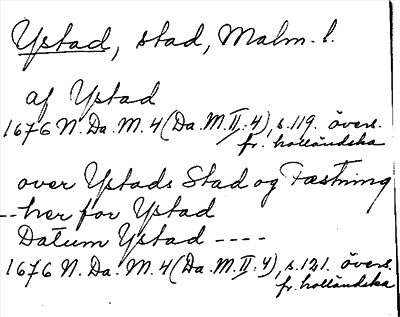 Ystad, stad, Malm. l.
af Ystad
1676 N. Da. M. 4 (Da. M. II. 4), s. 119. övers.
fr. holländska
over Ystads Stad og Fæstning
-- her for Ystad
Datum Ystad ----
1676 N. Da. M. 4 (Da. M. II. 4), s. 121. övers.
fr. holländska